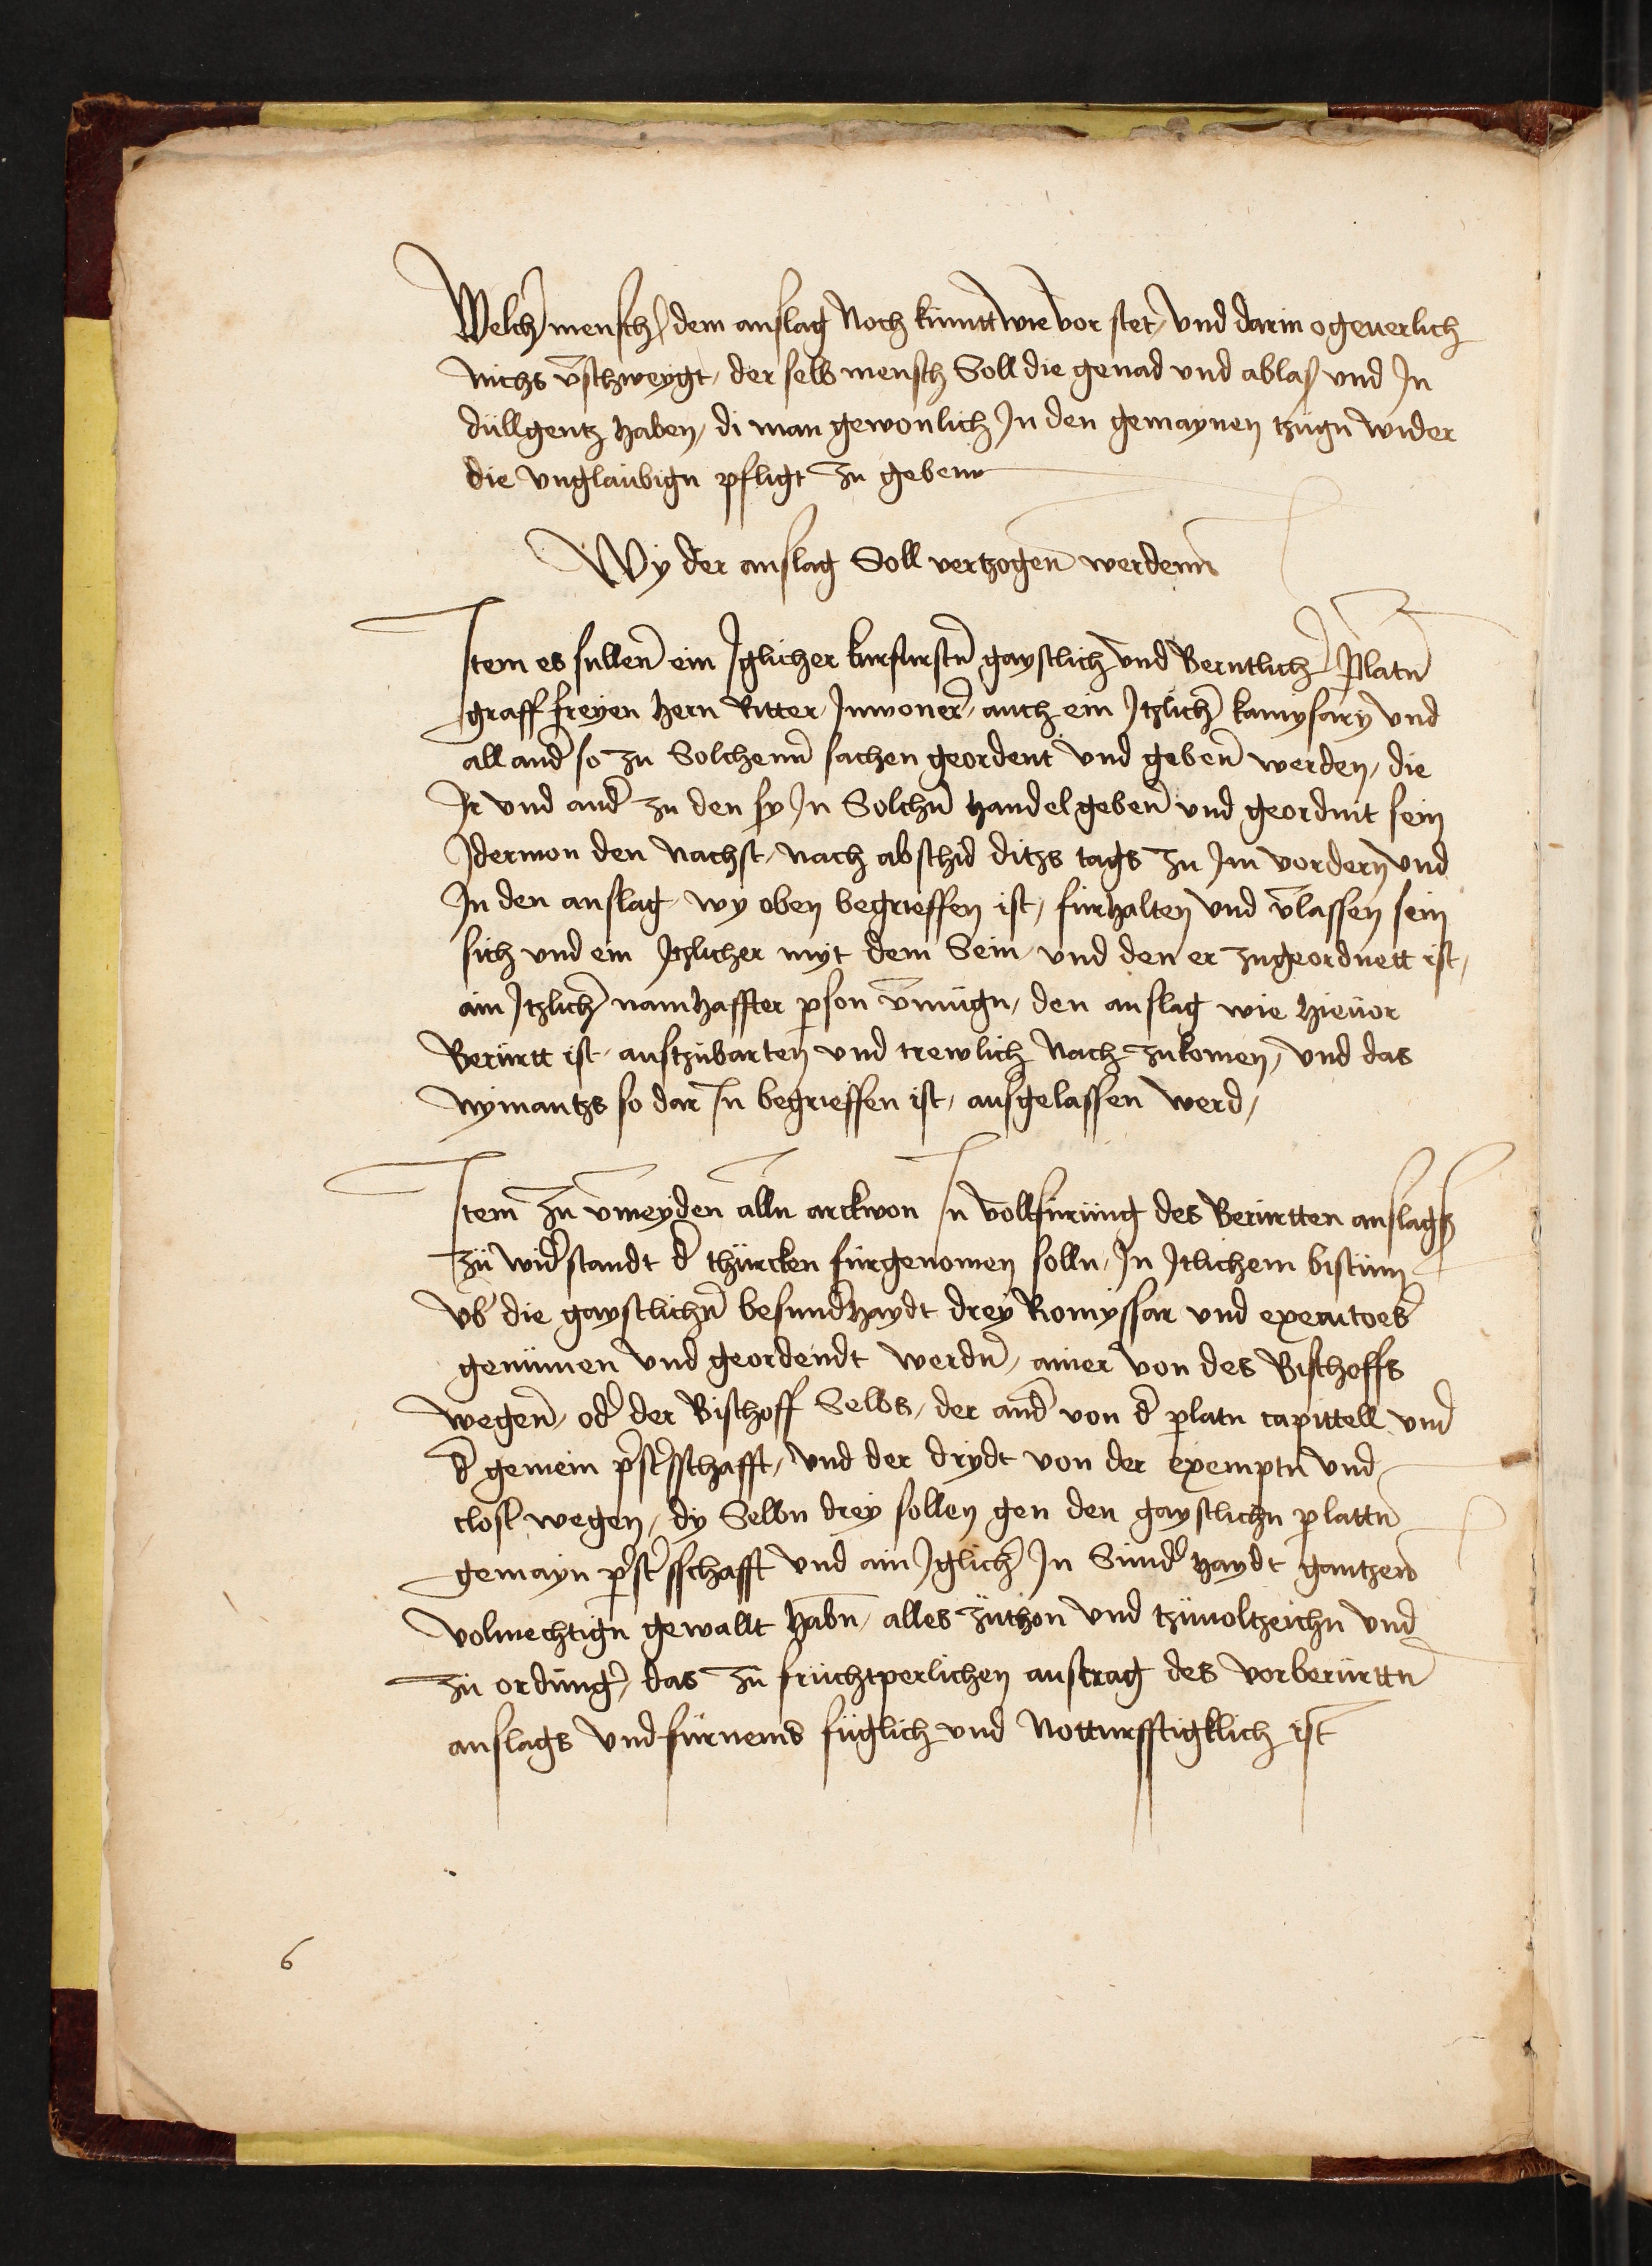 Welch mensch dem anslag Noch kümtt wie vor stet, vnd darin ogeuerlich
nichs v̄schweygt, der selb mensch Soll die genad vnd ablas vnd In
düllgentz haben, di man gewonlich In den gemaynen tzügn wider
die vnglaubign pfligt zu geben
Wy der anslag Soll vertzogen werdenn
Item es sullen ein Iglicher kurfursten gaystlich vnd Berntlich Platn
graff freyen hern Ritter Inwoner, auch ein Itzlich kamysary vnd
all and so zu Solchenn sachen geordent vnd geben werden, die
Ir vnd and zu den sy In Solchn handel geben vnd geordnit sein
Idermon den nachst, nach abschid ditzs tags zu Im vordern vnd
In den anslag, wy oben begrieffen ist, fürhalten vnd v̄lassen sein
sich vnd ein Itzlicher myt dem Sein, vnd den er zugeordnett ist,
ain Itzlich namhaffter pson v̄mügn, den anslag wie hieuor
Berürtt ist, vnd trewlich Nach zukomen, vnd das
nymantzs so dar In begrieffen ist, ausgelassen werd,
Item zu v̄meyden alln arckwon In vollfürüng des Berürtten anslags
zü widstandt d thürcken fürgenomen solln, In Itlichem bistum
vb die gaystlichn besundhaydt drey Romyssar vnd executoes
genümen vnd geordendt werdn, ainer von des Bischoffs
wegen, od der Bischoff Selbs, der and von d platn capittell vnd
d gemein pstsschafft, vnd der drydt von der exemptn vnd
closl wegen, dy Selbn drey sollen gen den gaystlichn plattn
gemayn pstsschafft vnd ain Iglich In Sund haydt gantzen
volmechtign gewallt habn, alles züthon vnd tzüuoltzeichn vnd
zü ordüng, das zü früchtperlichen austrag des vorberürttn
anslags vnd fürnems füglich vnd Notturfftigklich ist
6